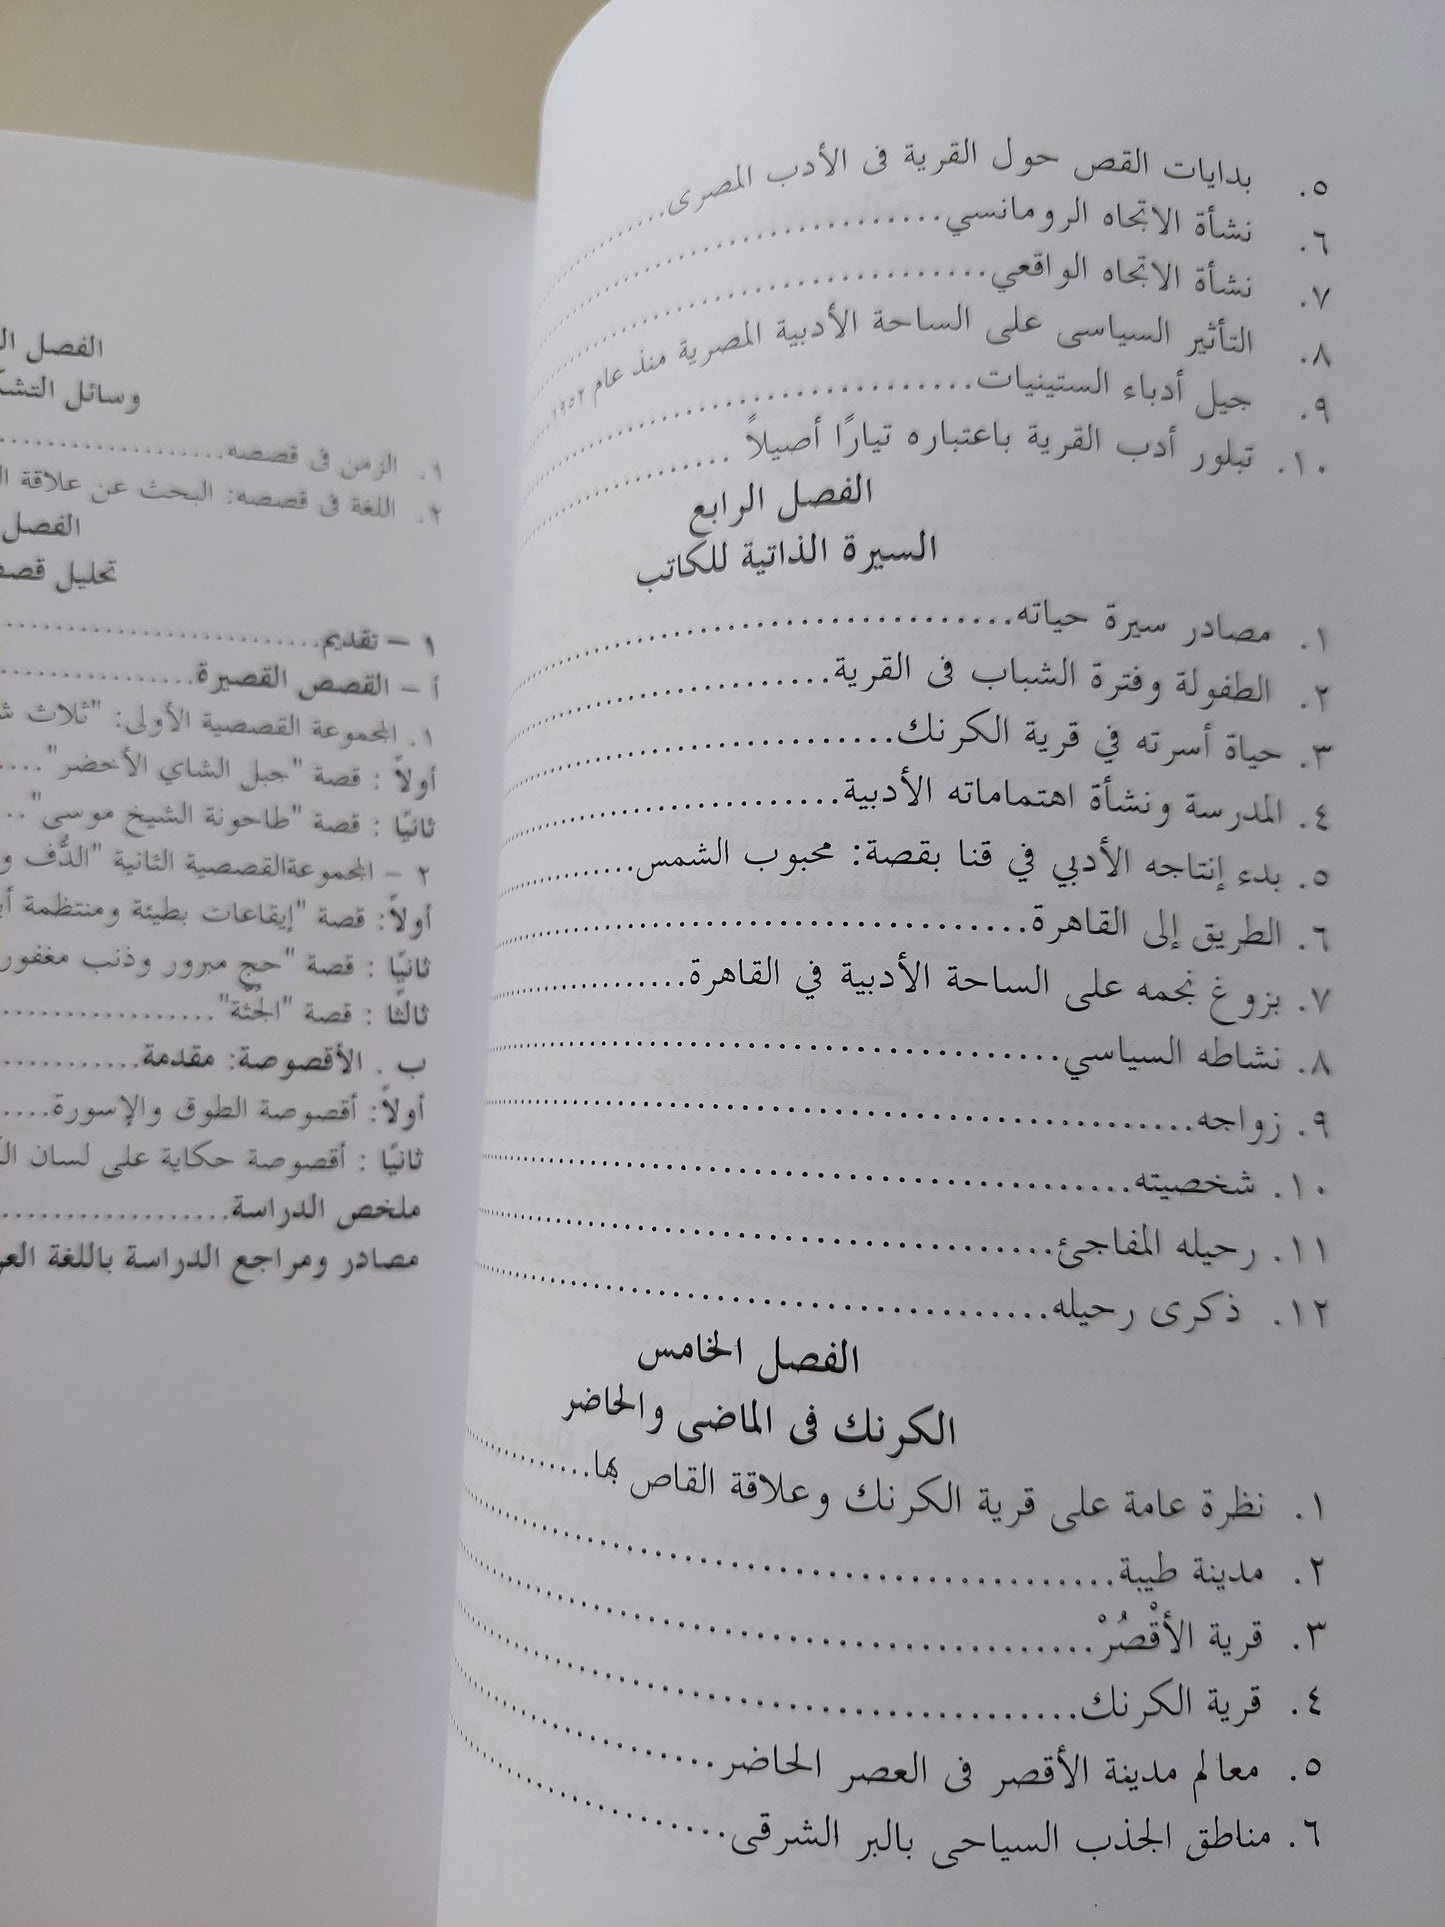 ٥. بدايات القص حول القرية فى الأدب المصرى
٦. نشأة الاتجاه الرومانسي
٧. نشأة الاتجاه الواقعي
٨. التأثير السياسى على الساحة الأدبية المصرية منذ عام ١٩٥٢
٩. جيل أدباء الستينيات
١٠. تبلور أدب القرية باعتباره تيارًا أصيلاً
الفصل الرابع
السيرة الذاتية للكاتب
١. مصادر سيرة حياته
٢. الطفولة وفترة الشباب فى القرية
٣. حياة أسرته في قرية الكرنك
٤. المدرسة ونشأة اهتماماته الأدبية
٥. بدء إنتاجه الأدبي في قنا بقصة: محبوب الشمس
٦. الطريق إلى القاهرة
٧. بزوغ نجمه على الساحة الأدبية في القاهرة
٨. نشاطه السياسي
٩. زواجه
١٠. شخصيته
١١. رحيله المفاجئ
١٢. ذكرى رحيله
الفصل الخامس
الكرنك فى الماضى والحاضر
١. نظرة عامة على قرية الكرنك وعلاقة القاص بها
٢. مدينة طيبة
٣. قرية الأقْصُرْ
٤. قرية الكرنك
٥. معالم مدينة الأقصر فى العصر الحاضر
٦. مناطق الجذب السياحى بالبر الشرقى
الفصل
وسائل
١. الزمن فى قصصه
٢. اللغة فى قصصه: البحث عن علاقة
الفصل
تحليل
١ – تقديم
أ – القصص القصيرة
١. المجموعة القصصية الأولى: "ثلاث
أولاً : قصة "جبل الشاي الأخضر"
ثانيًا : قصة "طاحونة الشيخ موسى"
٢ – المجموعةالقصصية الثانية "الدُّف
أولاً: قصة "إيقاعات بطيئة ومنتظمة
ثانيًا : قصة "حج مبرور وذنب مغفور
ثالثًا : قصة "الجُثة"
ب . الأقصوصة: مقدمة
أولاً: أقصوصة الطوق والإسورة
ثانيًا : أقصوصة حكاية على لسان
ملخص الدراسة
مصادر ومراجع الدراسة باللغة